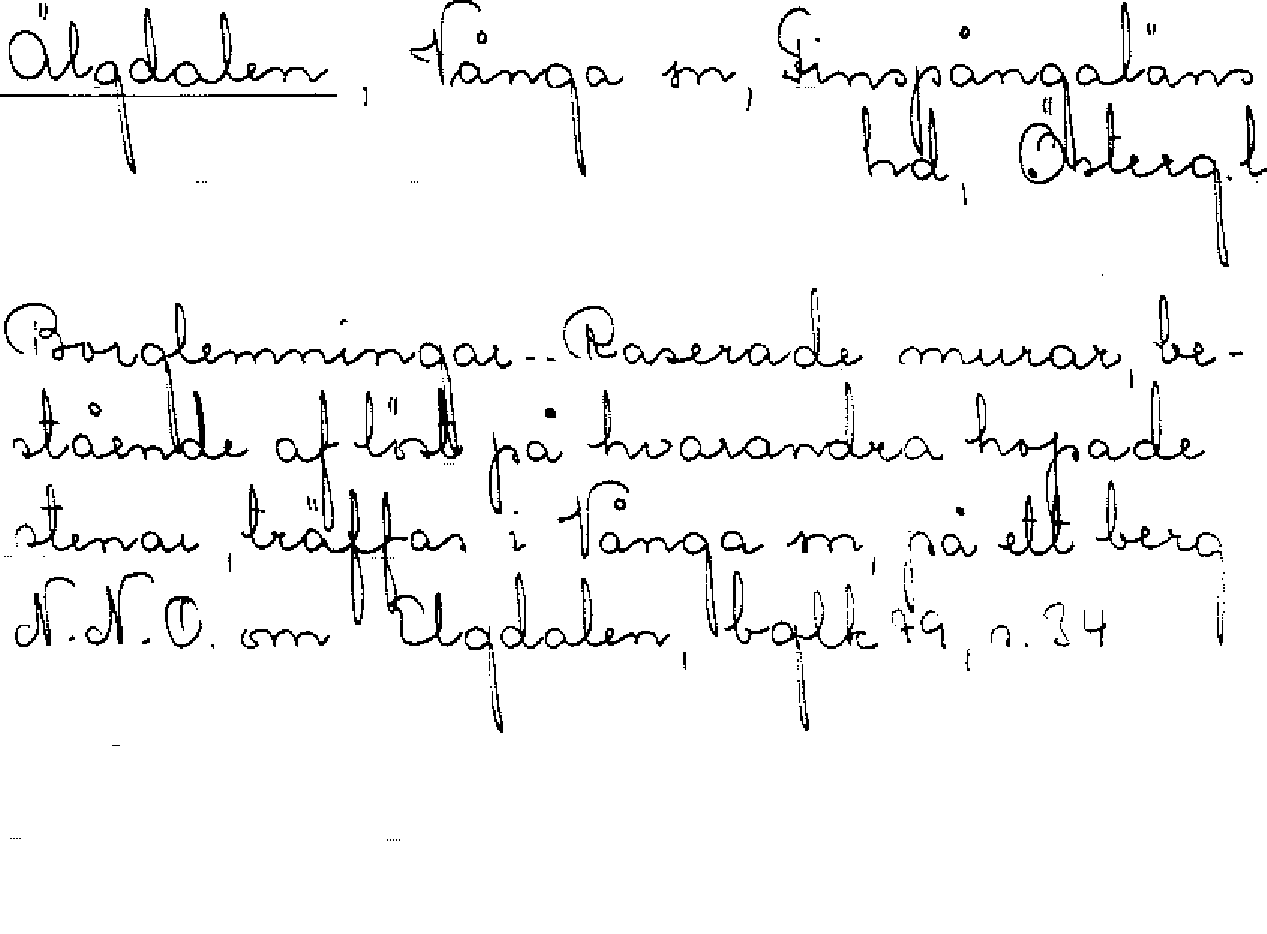 Älgdalen, Vånga sn, Finspångaläns
hd, Österg. l
Borglemningar -- Raserade murar, be-
stående af löst på hvarandra hopade
stenar, träffas i Vånga sn, på ett berg
N.N.O. om Elgdalen, bglk 79, s. 34